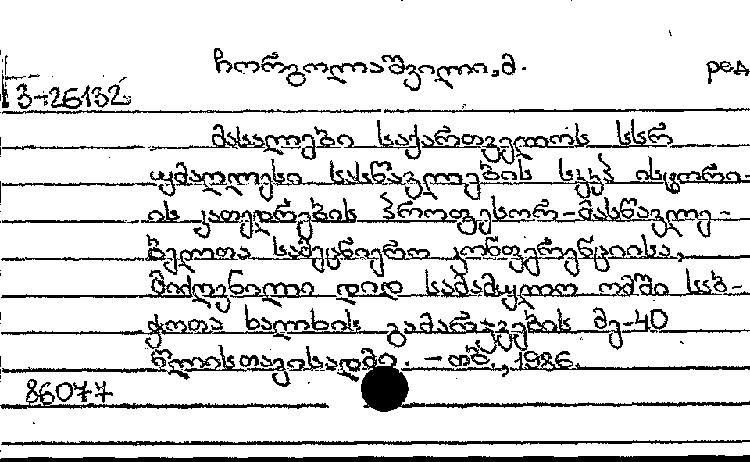 ჩორგოლაშვილი, მ. ред
3-26132
მასალები საქართველოს სსრ
უმაღლესი სასწავლებლების სკკპ ისტორი-
ის კათედრების პროფესორ-მასწავლე-
ბელთა სამეცნიერო კონფერენციისა,
მიძღვნილი დიდ სამამულო ომში საბ-
ჭოთა ხალხის გამარჯვების მე-40
წლისთავისადმი. - თბ., 1986.
86077